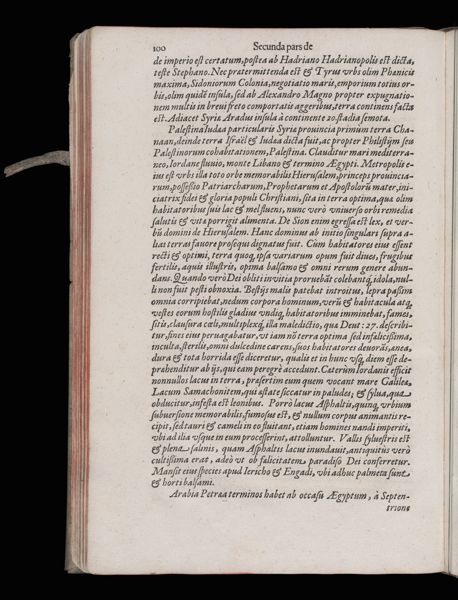 100 Secunda pars de
de imperio est certatum, postea ab Hadriano Hadrianopolis est dicta,
teste Stephano. Nec prætermittenda est & Tyrus vrbs olim Phœnicis
maxima, Sidoniorum Colonia, negotiatio maris, emporium totius or-
bis, olim quidē insula, sed ab Alexandro Magno propter expugnatio-
nem multis in breui freto comportatis aggeribus, terra continens facta
est. Adiacet Syriæ Aradus insula à continente 20. stadia semota.
Palestina Iudæa particularis Syriæ prouincia primum terra Cha-
naan, deinde terra Israël & Iudæa dicta fuit, ac propter Philistijm seu
Palestinorum cohabitationem, Palestina. Clauditur mari mediterra-
neo, Iordane fluuio, monte Libano & termino Ægypti. Metropolis e-
ius est vrbs illa toto orbe memorabilis Hierusalem, princeps prouincia-
rum, possessio Patriarcharum, Prophetarum et Apostolorū mater, ini-
ciatrix fidei & gloria populi Christiani, sita in terra optima, qua olim
habitatoribus suis lac & mel fluens, nunc verò vniuerso orbi remedia
salutis & vitæ porrigit alimenta. De Sion enim egressa est lex, et ver-
bū domini de Hierusalem. Hanc dominus ab initio singulari supra a-
lias terras fauore prosequi dignatus fuit. Cùm habitatores eius essent
recti & optimi, terra quoq; ipsa variarum opum fuit diues, frugibus
fertilis, aquis illustris, opima balsamo & omni rerum genere abun-
dans. Quando verò Dei obliti in vitia proruebāt colebantq; idola, nul-
li non fuit pesti obnoxia. Bestijs malis patebat introitus, lepra passim
omnia corripiebat, nedum corpora hominum, verū & habitacula atq;
vestes eorum hostilis gladius vndiq; habitatoribus imminebat, fames,
sitis, clausura cœli, multiplexq; illa maledictio, qua Deut: 27. describi-
tur, fines eius peruagabatur, vt iam nō terra optima sed infelicissima,
inculta, sterilis, omni dulcedine carens, suos habitatores deuorās, anea,
dura & tota horrida esse diceretur, qualis et in hunc vsq; diem esse de-
prehenditur ab ijs, qui eam peregrè accedunt. Cæterùm Iordanis efficit
nonnullos lacus in terra, præsertim eum quem vocant mare Galileæ,
Lacum Samachonitem, qui æstate siccatur in paludes; & sylua, qua
obducitur, infesta est leonibus. Porrò lacus Asphaltis, quinq; vrbium
subuersione memorabilis, fumosus est, & nullum corpus animantis re-
cipit, sed tauri & cameli in eo fluitant, etiam homines nandi imperiti,
vbi ad ilia vsque in eum processerint, attolluntur. Vallis syluestris est
& plena salinis, quam Asphaltis lacus inundauit, antiquitus verò
cultissima erat, adeò vt ob fœlicitatem paradiso Dei conferretur.
Mansit eius species apud Iericho & Engadi, vbi adhuc palmeta sunt
& horti balsami.
Arabia Petræa terminos habet ab occasu Ægyptum, à Septen-
trione